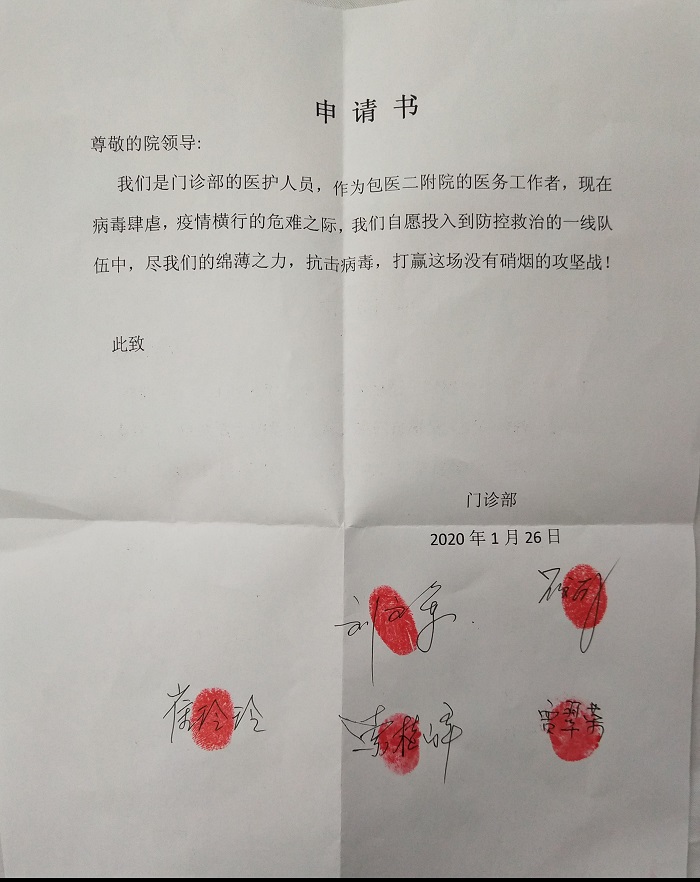 申请书
尊敬的院领导:
我们是门诊部的医护人员，作为包医二附院的医务工作者，现在
病毒肆虐，疫情横行的危难之际，我们自愿投入到防控救治的一线队
伍中，尽我们的绵薄之力，抗击病毒，打赢这场没有硝烟的攻坚战！
此致
门诊部
2020年1月26日
玲玲